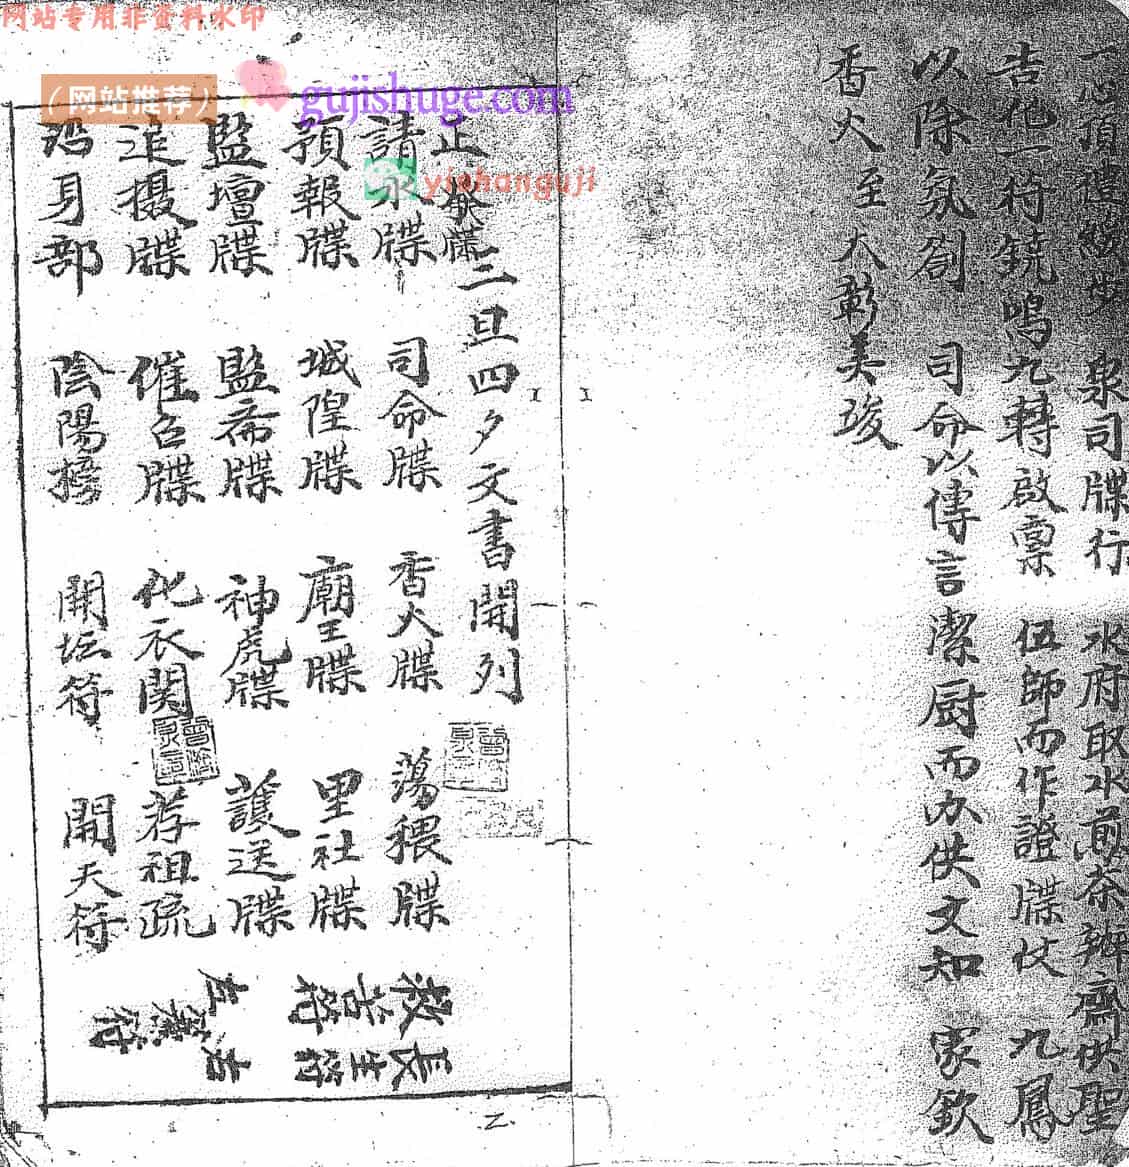 网站专用非资料水印
(网站推荐)
gujishuge.com
yishanguji
心頂進緩步 泉司牒行 水府取水煎茶辦齋供聖
吉先一符鐃鳴九轉啟稟 伍師而作證牒仗 九鳳
以除氛 司命以傳言潔厨而办供文知 家欽
香火至大彰美竣
止發牒三旦四夕文書開列
請水牒 司命牒 香火牒 蕩穢牒
預報牒 城隍牒 廟王牒 里社牒
監壇牒 監斋牒 神虎牒 護送牒
追摄牒 催召牒 化衣関 荐祖疏
沿身部 陰陽榜 開坛符 開天符
救苦符
長生符